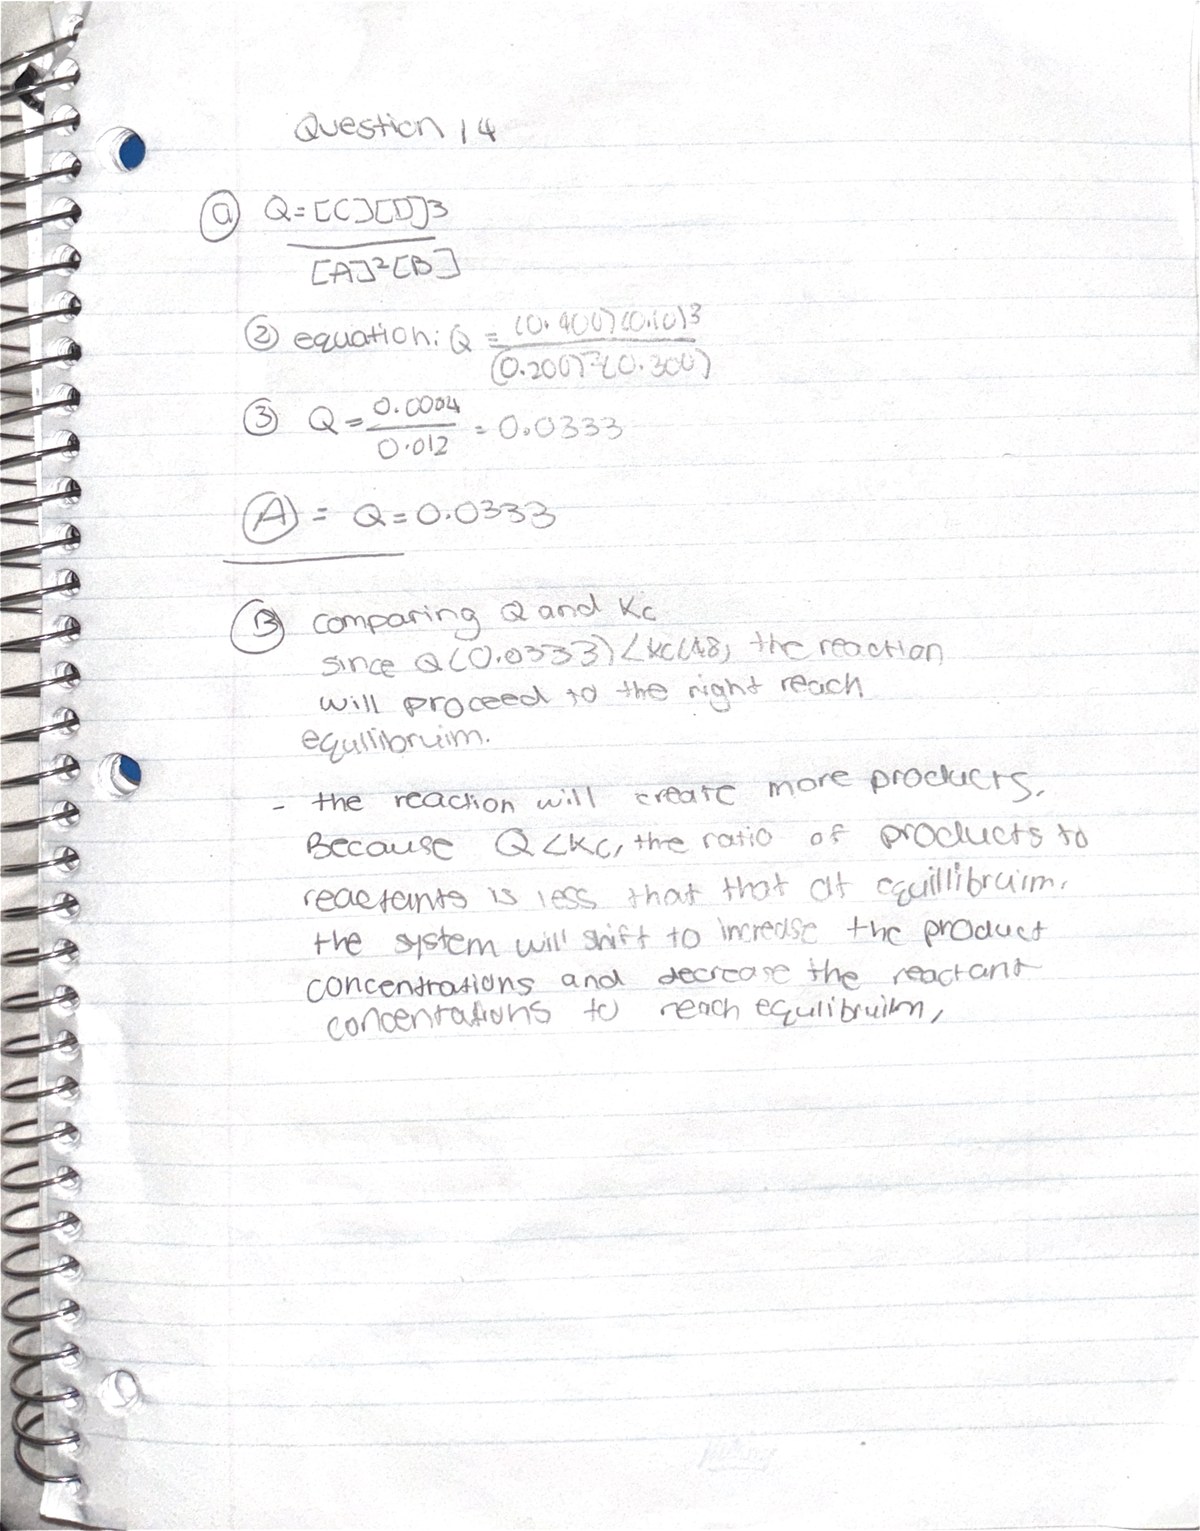 Question 14
a Q=[C][D]3
[A]²[B]
② equation: Q = (0.400)(0.10)3
(0.200)²(0.300)
③ Q = 0.0004
0.012
= 0.0333
A = Q=0.0333
B comparing Q and Kc
since Q(0.0333)<Kc(48) the reaction
will proceed to the right reach
equilibruim.
- the reaction will create more products.
Because Q<Kc, the ratio of products to
reactants is less that that at equillibruim.
the system will shift to increase the product
concentrations and decrease the reactant
concentrations to reach equlibruim,